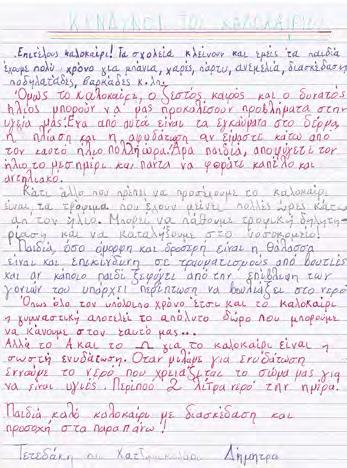 ΚΙΝΔΥΝΟΙ ΤΟΥ ΚΑΛΟΚΑΙΡΙΟΥ
Επιτέλους καλοκαίρι! Τα σχολεία κλείνουν και εμείς τα παιδιά
έχουμε πολύ χρόνο για μπάνια, χαρές, πάρτυ, ανεμελιά, διασκέδαση
ποδηλατάδες, βαρκάδες κ.λπ.
Όμως το καλοκαίρι, ο ζεστός καιρός και ο δυνατός
ήλιος μπορούν να μας προκαλέσουν προβλήματα στην
υγεία μας. Ένα από αυτά είναι τα εγκαύματα στο δέρμα,
η ηλίαση και η αφυδάτωση αν είμαστε κάτω από
τον καυτό ήλιο πολλή ώρα. Άρα παιδιά, αποφύγετε τον
ήλιο το μεσημέρι και πάντα να φοράτε καπέλο και
αντηλιακό.
Κάτι άλλο που πρέπει να προσέχουμε το καλοκαίρι
είναι τα τρόφιμα που έχουν μείνει πολλές ώρες κάτω
απ' τον ήλιο. Μπορεί να πάθουμε τροφική δηλητη-
ρίαση και να καταλήξουμε στο νοσοκομείο!
Παιδιά, όσο όμορφη και δροσερή είναι η θάλασσα
είναι και επικίνδυνη σε τραυματισμούς από βουτιές
και αν κάποιο παιδί ξεφύγει από την επίβλεψη των
γονιών του υπάρχει περίπτωση να βουλιάξει στο νερό
Όπως όλο τον υπόλοιπο χρόνο έτσι και το καλοκαίρι
η γυμναστική αποτελεί το απόλυτο δώρο που μπορούμε
να κάνουμε στον εαυτό μας...
Αλλά το Α και το Ω για το καλοκαίρι είναι η
σωστή ενυδάτωση. Όταν μιλάμε για ενυδάτωση
εννοούμε το νερό που χρειάζεται το σώμα μας για
να είναι υγιές. Περίπου 2 λίτρα νερό την ημέρα.
Παιδιά καλό καλοκαίρι με διασκέδαση και
προσοχή στα παραπάνω!
Τετεδάκη Δήμητρα